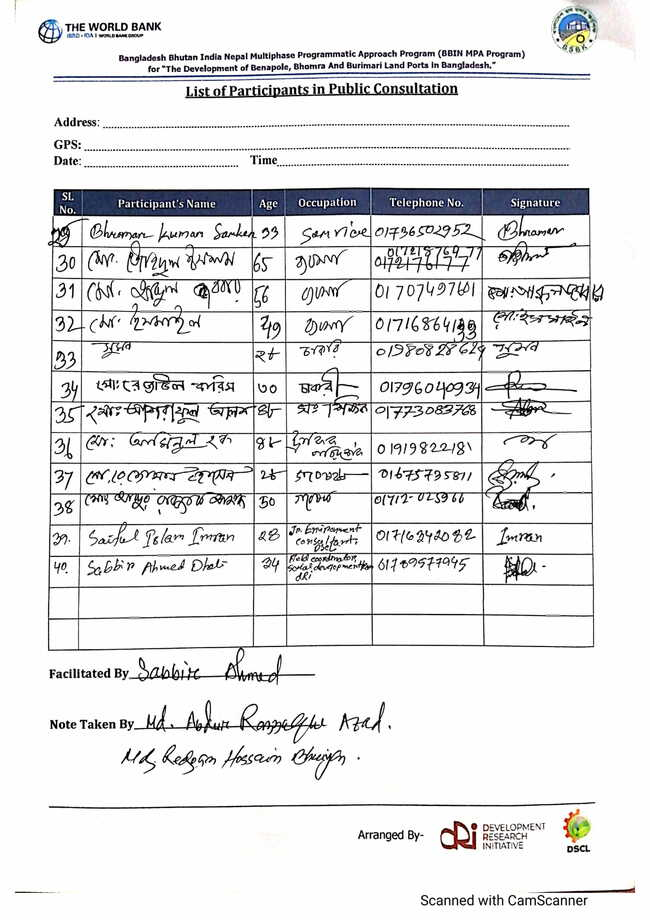 THE WORLD BANK
IBRD • IDA | WORLD BANK GROUP
BSBK
Bangladesh Bhutan India Nepal Multiphase Programmatic Approach Program (BBIN MPA Program)
for "The Development of Benapole, Bhomra And Burimari Land Ports in Bangladesh."
List of Participants in Public Consultation
Address:
GPS:
Date: Time
SL No. Participant's Name Age Occupation Telephone No. Signature
29 Kumar Sarker 33 Service 01736502952
30 মোঃ 65 কৃষক
31 মোঃ আব্দুল 56 কৃষক 01707497601
32 মোঃ ইসমাইল 49 কৃষক
33 সুমন ২৮ চাকরি 01980828629 সুমন
34 মোঃ রেজাউল করিম ৩০ চাকরী 01796040934
35 মোঃ আশরাফুল আলম 01773083768
36 মোঃ হক 01919822181
37 মোঃ 01675735811
38 মোঃ আব্দুর 50 01712-025966
39. Saiful Islam Imran 28 Jr. Environment Consultant, DSCL 01716342082 Imran
40. Sabbir Ahmed Dhali 34 Field coordinator, DRI 01789577945
Facilitated By Sabbir Ahmed
Note Taken By Md. Abdur Azad.
Md. Redoan Hossain Bhuiyan.
Arranged By- DRi DEVELOPMENT RESEARCH INITIATIVE DSCL
Scanned with CamScanner